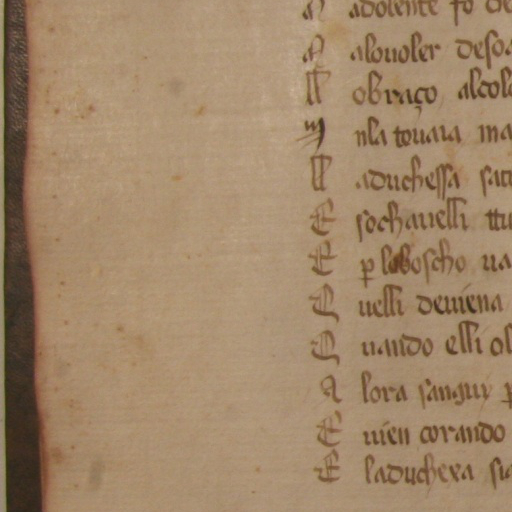 A adolente fo de
A alouoler deso
ll obraço alcol
nla touaia ma
ll aduchessa sa
E sochauelli
E p loboscho ua
Q uelli deuiena
Q uando elli ol
A lora sanguy p
E uien corando
E laduchexa si